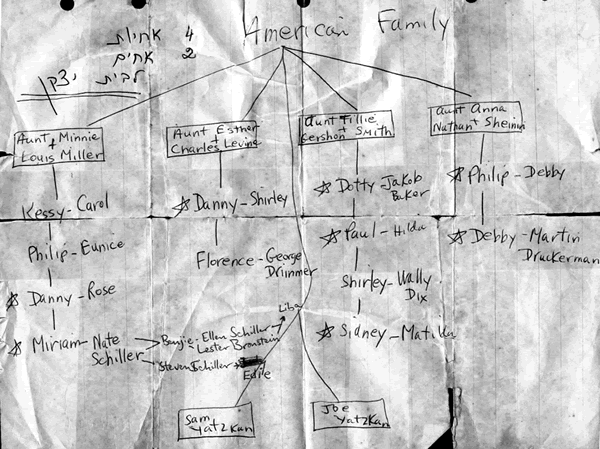 American Family
4 אחיות
2 אחים
לבית יצקן
Aunt Minnie
+
Louis Miller
Aunt Esther
+
Charles Levine
Aunt Tillie
+
Gershon Smith
Aunt Anna
+
Nathan Sheinin
Kessy-Carol
Philip-Eunice
Danny-Rose
Miriam-Nate
Schiller
Banjie-Ellen Schiller
Lester Bronstein
Steven Schiller
Edie
Liba
Danny-Shirley
Florence-George
Drimmer
Dotty-Jakob
Baker
Paul-Hilda
Shirley-Wally
Dix
Sidney-Matilda
Philip-Debby
Debby-Martin
Druckerman
Sam
Yatzkan
Joe
Yatzkan